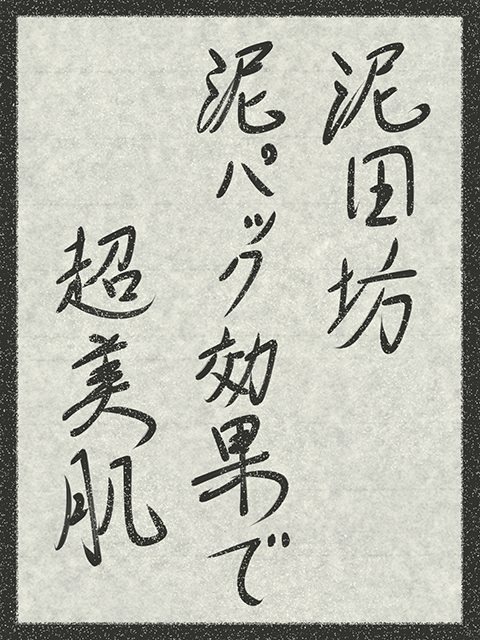 泥田坊
泥パック効果で
超美肌